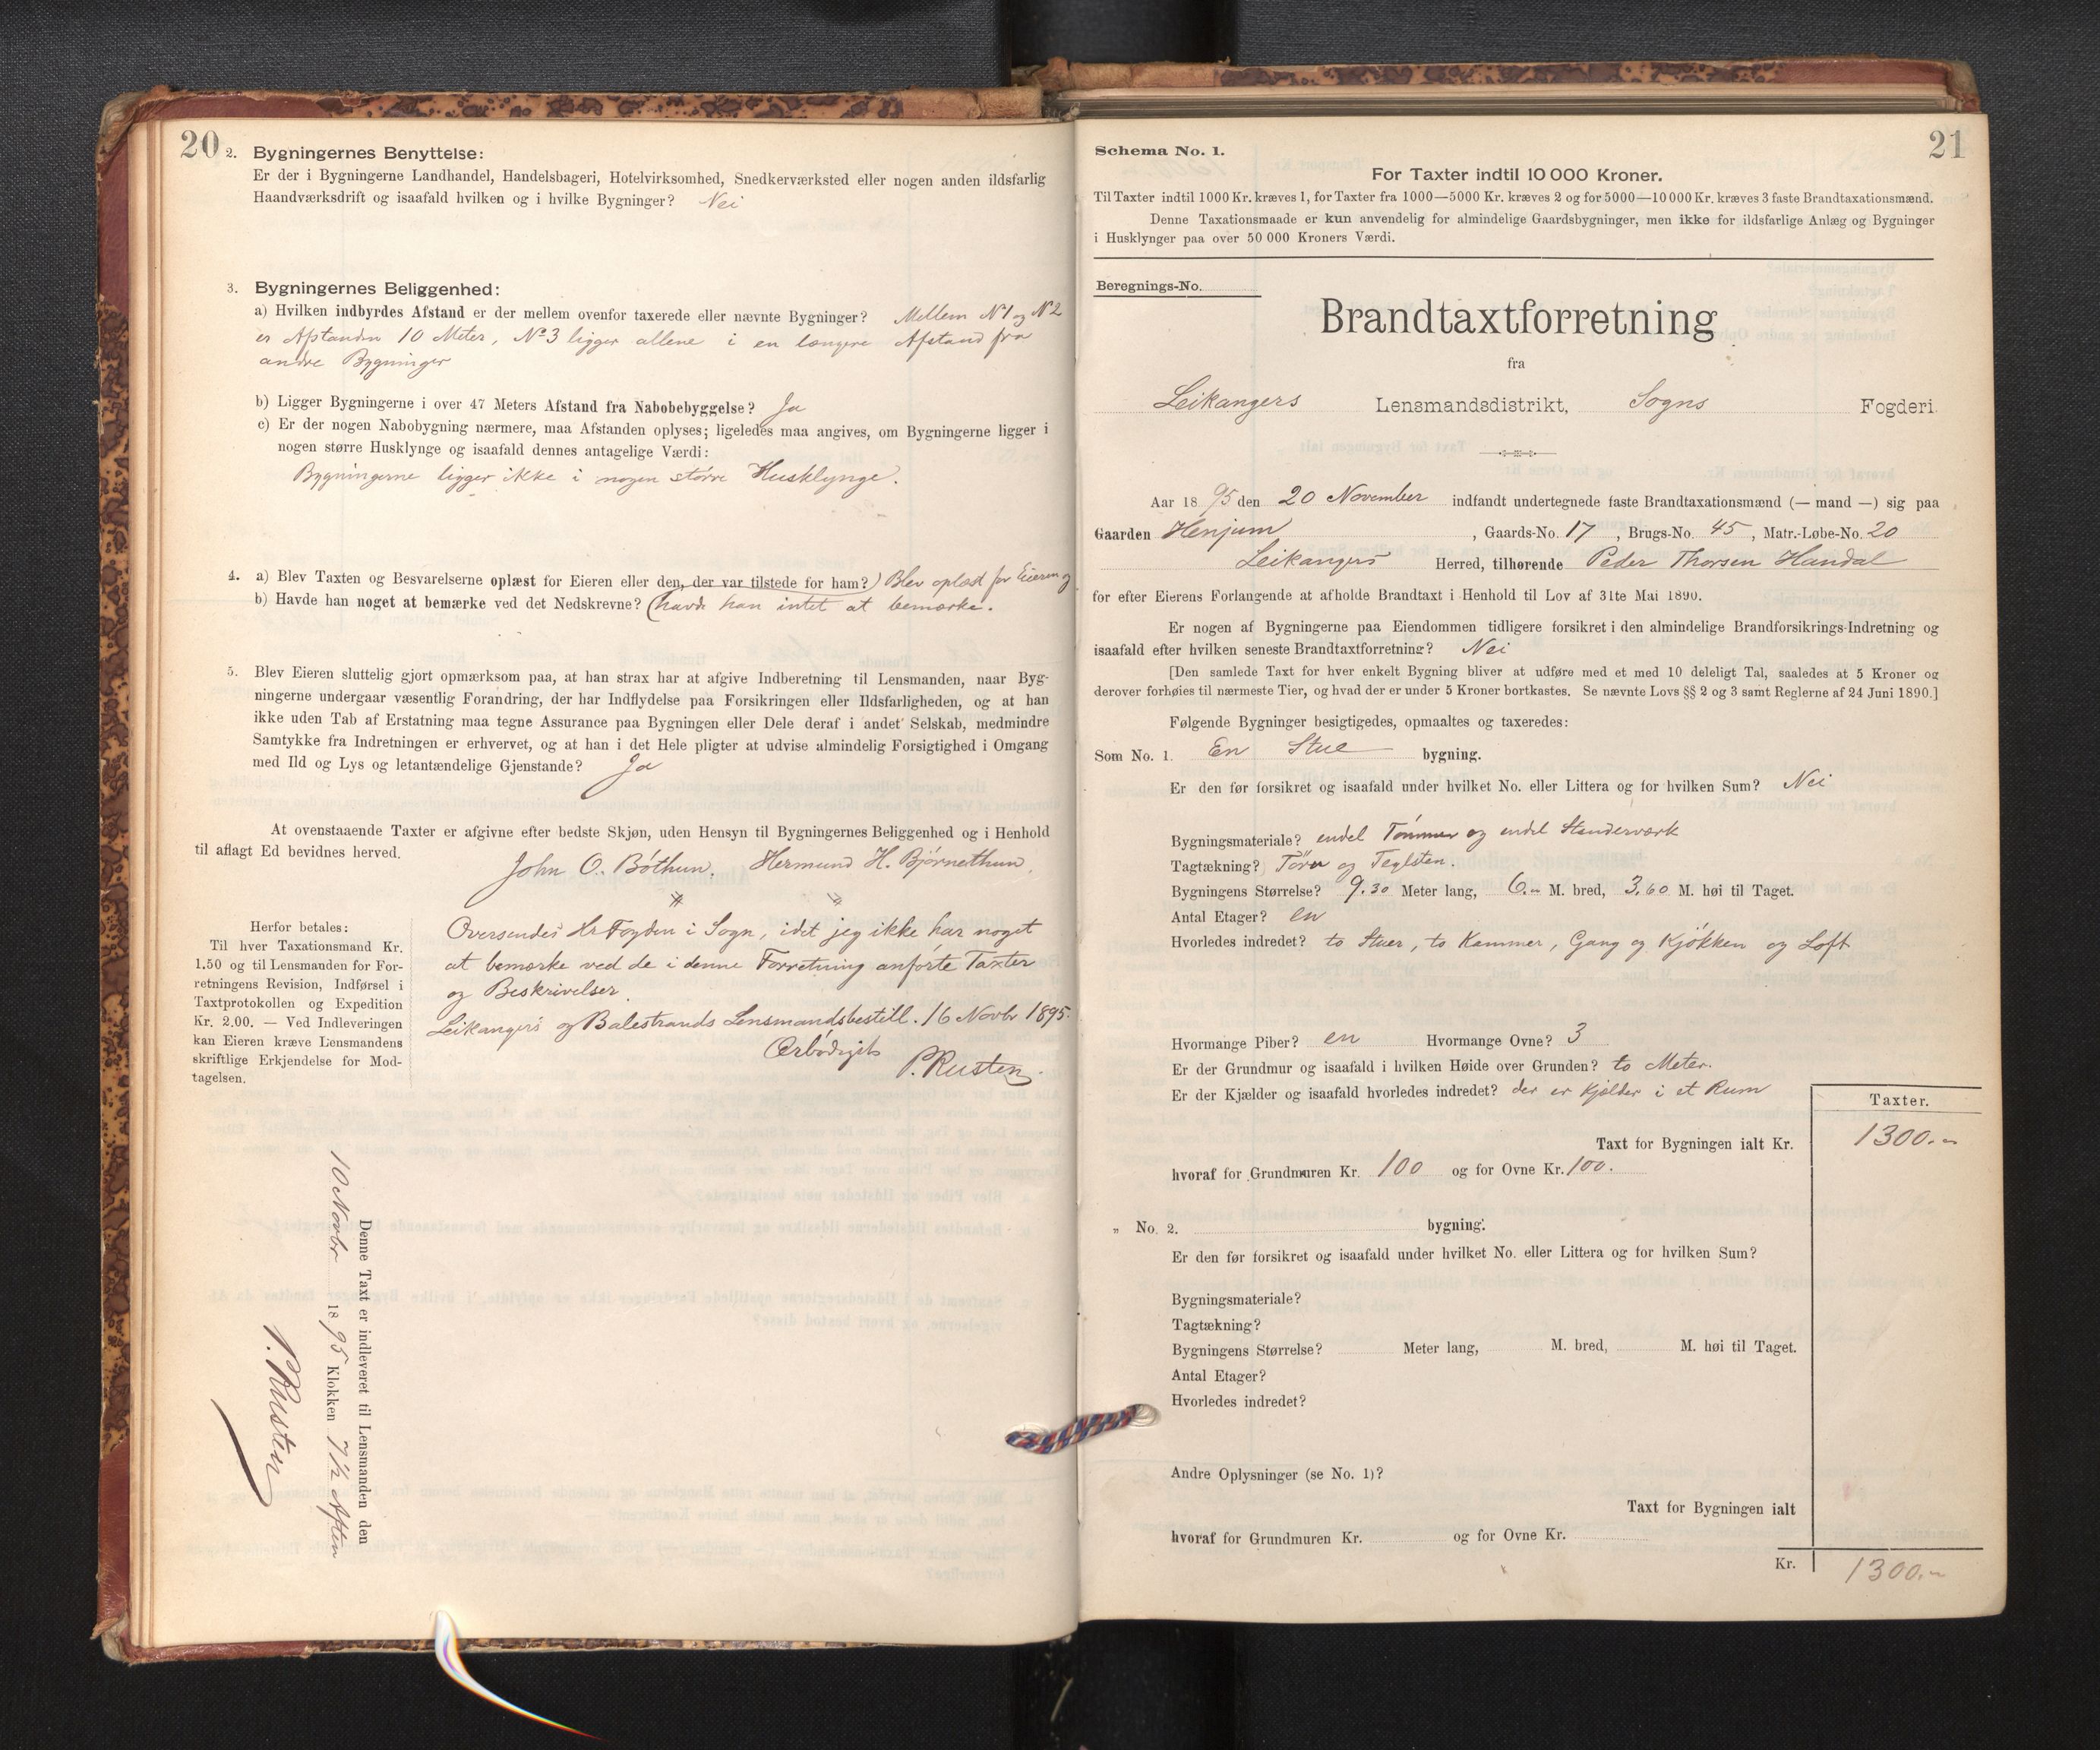 20
2. Bygningernes Benyttelse:
Er der i Bygningerne Landhandel, Handelsbageri, Hotelvirksomhed, Snedkerværksted eller nogen anden ildsfarlig
Haandværksdrift og isaafald hvilken og i hvilke Bygninger? Nei
3. Bygningernes Beliggenhed:
a) Hvilken indbyrdes Afstand er der mellem ovenfor taxerede eller nævnte Bygninger? Mellem No 1 og No 2
er Afstanden 10 Meter, No 3 ligger allene i en længere Afstand fra
andre Bygninger
b) Ligger Bygningerne i over 47 Meters Afstand fra Nabobebyggelse? Ja
c) Er der nogen Nabobygning nærmere, maa Afstanden oplyses; ligeledes maa angives, om Bygningerne ligger i
nogen større Husklynge og isaafald dennes antagelige Værdi:
Bygningerne ligger ikke i nogen större Husklynge.
4. a) Blev Taxten og Besvarelserne oplæst for Eieren eller den, der var tilstede for ham? Blev oplæst for Eieren og
b) Havde han noget at bemærke ved det Nedskrevne? (havde han intet at bemærke.
5. Blev Eieren sluttelig gjort opmærksom paa, at han strax har at afgive Indberetning til Lensmanden, naar Byg-
ningerne undergaar væsentlig Forandring, der har Indflydelse paa Forsikringen eller Ildsfarligheden, og at han
ikke uden Tab af Erstatning maa tegne Assurance paa Bygningen eller Dele deraf i andet Selskab, medmindre
Samtykke fra Indretningen er erhvervet, og at han i det Hele pligter at udvise almindelig Forsigtighed i Omgang
med Ild og Lys og letantændelige Gjenstande? Ja
At ovenstaaende Taxter er afgivne efter bedste Skjøn, uden Hensyn til Bygningernes Beliggenhed og i Henhold
til aflagt Ed bevidnes herved.
John O. Böthun. Hermund H. Bjørnethun.
Herfor betales:
Til hver Taxationsmand Kr.
1.50 og til Lensmanden for For-
retningens Revision, Indførsel i
Taxtprotokollen og Expedition
Kr. 2.00. — Ved Indleveringen
kan Eieren kræve Lensmandens
skriftlige Erkjendelse for Mod-
tagelsen.
Oversendes Hr Fogden i Sogn, idet jeg ikke har noget
at bemærke ved de i denne Forretning anførte Taxter
og Beskrivelser.
Leikangers og Balestrands Lensmandsbestill. 16 Novbr 1895.
Ærbødigst
P. Rusten.
Denne Taxt er indleveret til Lensmanden den
10 Novbr 1895 Klokken 7½ Aften
P. Rusten
21
Schema No. 1.
For Taxter indtil 10 000 Kroner.
Til Taxter indtil 1000 Kr. kræves 1, for Taxter fra 1000—5000 Kr. kræves 2 og for 5000—10 000 Kr. kræves 3 faste Brandtaxationsmænd.
Denne Taxationsmaade er kun anvendelig for almindelige Gaardsbygninger, men ikke for ildsfarlige Anlæg og Bygninger
i Husklynger paa over 50 000 Kroners Værdi.
Beregnings-No.
Brandtaxtforretning
fra
Leikangers Lensmandsdistrikt, Sogns Fogderi.
Aar 1895 den 20 November indfandt undertegnede faste Brandtaxationsmænd (— mand —) sig paa
Gaarden Henjum, Gaards-No. 17, Brugs-No. 45, Matr.-Løbe-No. 20
Leikangers Herred, tilhørende Peder Thorsen Handal
for efter Eierens Forlangende at afholde Brandtaxt i Henhold til Lov af 31te Mai 1890.
Er nogen af Bygningerne paa Eiendommen tidligere forsikret i den almindelige Brandforsikrings-Indretning og
isaafald efter hvilken seneste Brandtaxtforretning? Nei
[Den samlede Taxt for hver enkelt Bygning bliver at udføre med et med 10 deleligt Tal, saaledes at 5 Kroner og
derover forhøies til nærmeste Tier, og hvad der er under 5 Kroner bortkastes. Se nævnte Lovs §§ 2 og 3 samt Reglerne af 24 Juni 1890.]
Følgende Bygninger besigtigedes, opmaaltes og taxeredes:
Som No. 1. En Stue bygning.
Er den før forsikret og isaafald under hvilket No. eller Littera og for hvilken Sum? Nei
Bygningsmateriale? endel Tömmer og endel Standerværk
Tagtækning? Törv og Teglsten.
Bygningens Størrelse? 9.30 Meter lang, 6.„ M. bred, 3.60 M. høi til Taget.
Antal Etager? en
Hvorledes indredet? to Stuer, to Kammer, Gang og Kjökken og Loft
Hvormange Piber? en Hvormange Ovne? 3
Er der Grundmur og isaafald i hvilken Høide over Grunden? to Meter.
Er der Kjælder og isaafald hvorledes indredet? der er Kjælder i et Rum
Taxter.
Taxt for Bygningen ialt Kr. 1300.-„
hvoraf for Grundmuren Kr. 100 og for Ovne Kr. 100.
„ No. 2. bygning.
Er den før forsikret og isaafald under hvilket No. eller Littera og for hvilken Sum?
Bygningsmateriale?
Tagtækning?
Bygningens Størrelse? Meter lang, M. bred, M. høi til Taget.
Antal Etager?
Hvorledes indredet?
Andre Oplysninger (se No. 1)?
Taxt for Bygningen ialt
hvoraf for Grundmuren Kr. og for Ovne Kr.
Kr. 1300.-„